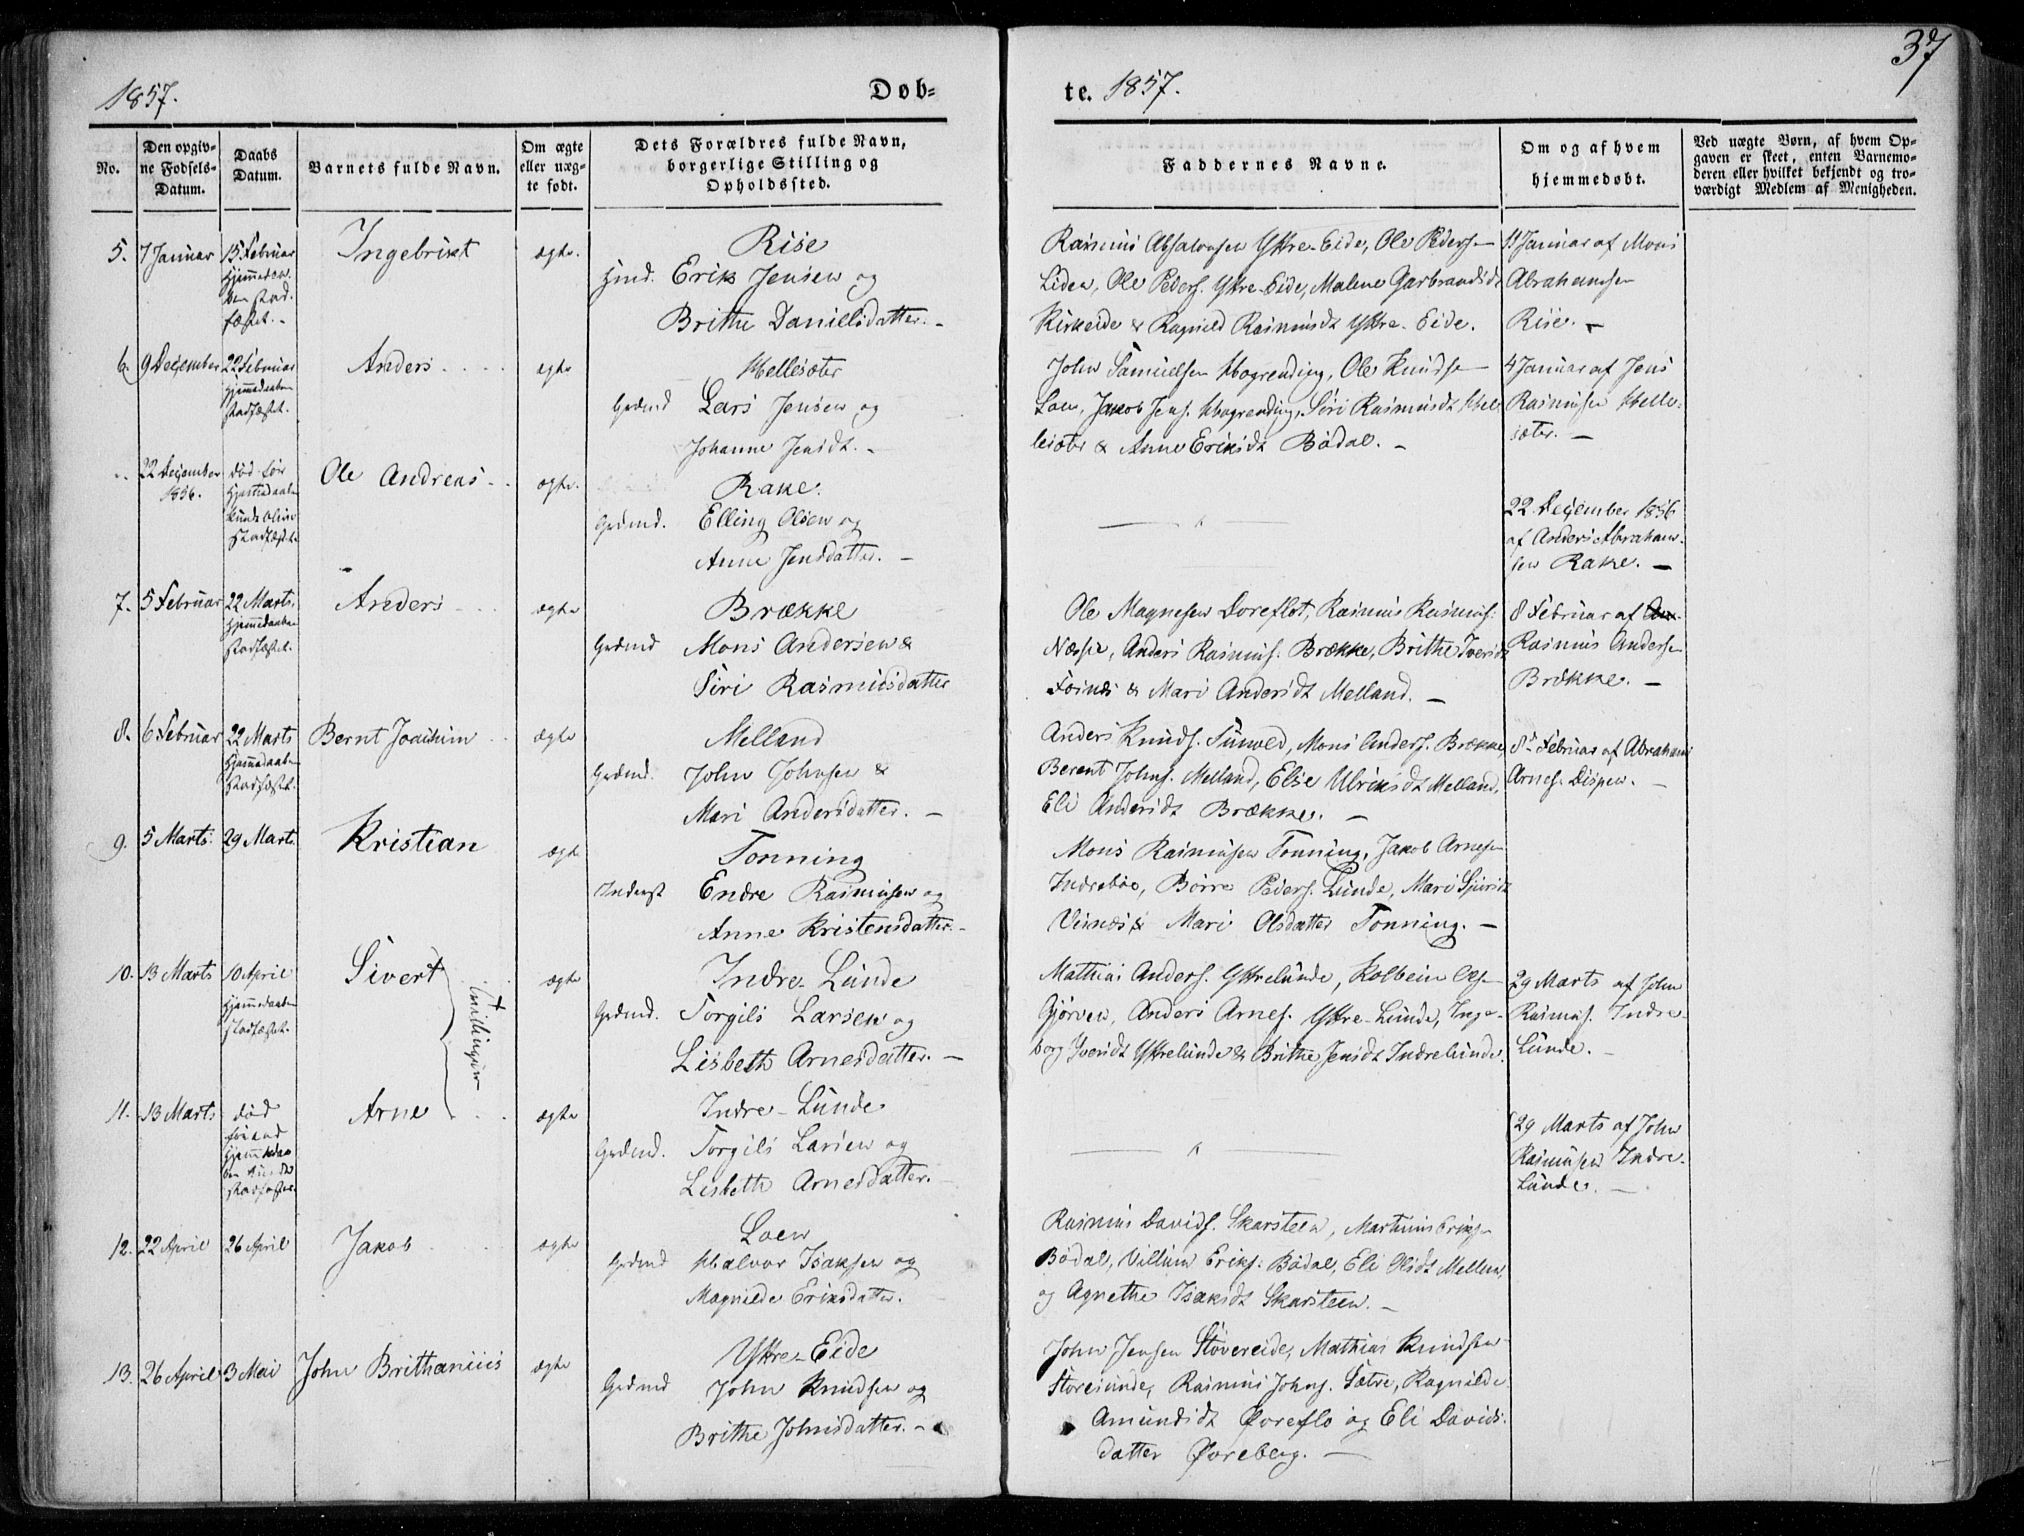 1857.
Døb-
te. 1857.
37
No.
Den opgiv-
ne Fødsels-
Datum.
Daabs
Datum.
Barnets fulde Navn.
Om ægte
eller uæg-
te født.
Dets Forældres fulde Navn,
borgerlige Stilling og
Opholdssted.
Faddernes Navne.
Om og af hvem
hjemmedøbt.
Ved uægte Børn, af hvem Op-
gaven er skeet, enten Barnemo-
deren eller hvilket bekjendt og tro-
værdigt Medlem af Menigheden.
5. 7 Januar 15 Februar Ingebrikt ægte. Rise
Hjemmedaa-
ben stad-
fæstet. -
Erik Jensen og
Brithe Danielsdatter. -
Rasmus Absalonsen Yttre-Eide, Ole Peders-
Liden, Ole Peders. Yttre-Eide, Malene Garbrandsdt
Kirkeide & Ragnild Rasmusdt Yttre-Eide.
11 Januar af Mons
Abrahamsen
Rise. -
6. 9 December 22 Februar Anders ægte Hellesæter
Hjemmedaaben
stadfæstet.
Grdmd Lars Jensen og
Johanne Jensdt. -
John Samuelsen Hogrending, Ole Knudse-
Loen, Jakob Jens. Hogrending, Siri Rasmusdt Hel-
lesæter & Anne Eriksdt Bødal. -
4 Januar af Jens
Rasmusen Helle-
sæter. -
22 December
1856.
død før
Hjemmedaaben
kunde blive
stadfæstet
Ole Andreas ægte. Rake.
Grdmd. Elling Olsen og
Anne Jensdatter. -
22 December 1856
af Anders Abraham-
sen Rake. -
7. 5 Februar 22 Marts. Anders ægte Brække
Hjemmedaaben
stadfæstet.
Grdmd Mons Andersen &
Siri Rasmusdatter
Ole Magnesen Doreflot, Rasmus Rasmus.
Næsse, Anders Rasmus. Brække, Brithe Iversdt
& Mari Andersdt Melland. -
8 Februar af
Rasmus Anderse-
Brække. -
8. 6 Februar 22 Marts Bernt Joachim ægte Melland
Hjemmedaaben
stadfæstet.
Grdmd. John Johnsen &
Mari Andersdatter. -
Anders Knuds. Mons Anders. Brække,
Berent Johns. Melland, Else Ulriksdt Melland,
Eli Andersdt Brække. -
8de Februar af Abraham
Arnes. Dispen. -
9. 5 Marts. 29 Marts. Kristian ægte Tonning
Inderst Endre Rasmusen og
Anne Kristensdatter. -
Mons Rasmusen Tonning, Jakob Arnesen
Indrebøe, Børre Peders. Lunde, Mari Sjursdt
Visnæs & Mari Olsdatter Tonning. -
10. 13 Marts 10 April Sivert ægte Indre-Lunde
Tvillinger
Hjemmedaaben
stadfæstet.
Grdmd. Torgils Larsen og
Lisbeth Arnesdatter. -
Mathias Anders. Yttrelunde, Kolbein Ols-
Gjørven, Anders Arnes. Yttre-Lunde, Inge-
borg Iversdt Yttrelunde & Brithe Jensdt Indrelunde.
29 Marts af John
Rasmus. Indre-
Lunde. -
11. 13 Marts død Arne ægte Indre-Lunde
førend
Hjemmedaa-
ben kunde
stadfæstes.
Grdmd. Torgils Larsen og
Lisbeth Arnesdatter. -
29 Marts af John
Rasmusen Indre-
Lunde. -
12. 22 April 26 April Jakob ægte Loen
Grdmd Halvor Isaksen og
Magnilde Eriksdatter.
Rasmus Davids. Skarsteen, Martinus Eriks-
Bødal, Villum Eriks. Bødal, Eli Olsdt Mellum,
og Agnethe Isaksdt Skarsteen. -
13. 26 April 3 Mai John Brithanius ægte Yttre-Eide
Grdmd John Knudsen og
Brithe Johnsdatter. -
John Jensen Støvereide, Mathias Knudsen
Storesunde, Rasmus Johns. Sætre, Ragnilde
Amundsdt Øvreflo og Eli Davids-
datter Øvreberg. -